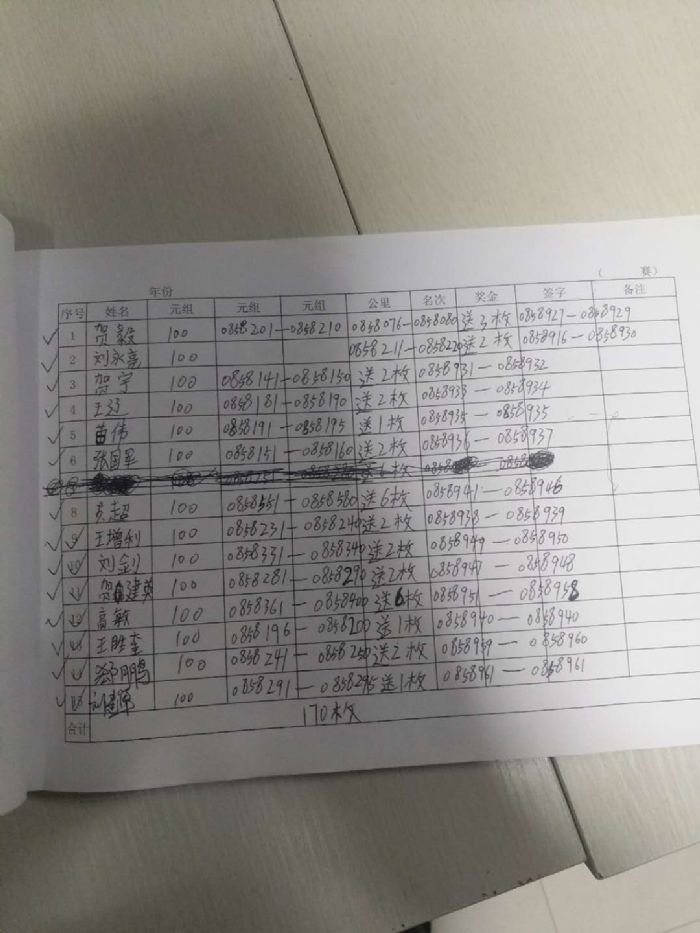 年份 （ 赛）
序号 姓名 元组 元组 元组 公里 名次 奖金 签字 备注
1 贺毅 100 0858201—0858210 0858076—0858080 送3枚 0858927—0858929
2 刘永亮 100 0858211—0858220 送2枚 0858916—0858930
3 贺宇 100 0858141—0858150 送2枚 0858931—0858932
4 王辽 100 0858181—0858190 送2枚 0858933—0858934
5 苗伟 100 0858191—0858195 送1枚 0858935—0858935
6 张国军 100 0858151—0858160 送2枚 0858936—0858937
8 袁超 100 0858551—0858580 送6枚 0858941—0858946
9 王增利 100 0858231—0858240 送2枚 0858938—0858939
10 刘剑 100 0858331—0858340 送2枚 0858949—0858950
11 贺建英 100 0858281—0858290 送2枚 0858947—0858948
12 高敏 100 0858361—0858400 送6枚 0858951—0858958
13 王胜奎 100 0858196—0858200 送1枚 0858940—0858940
郑鹏 100 0858241—0858250 送2枚 0858959—0858960
刘 100 0858291—0858295 送1枚 0858961—0858961
合计 170枚